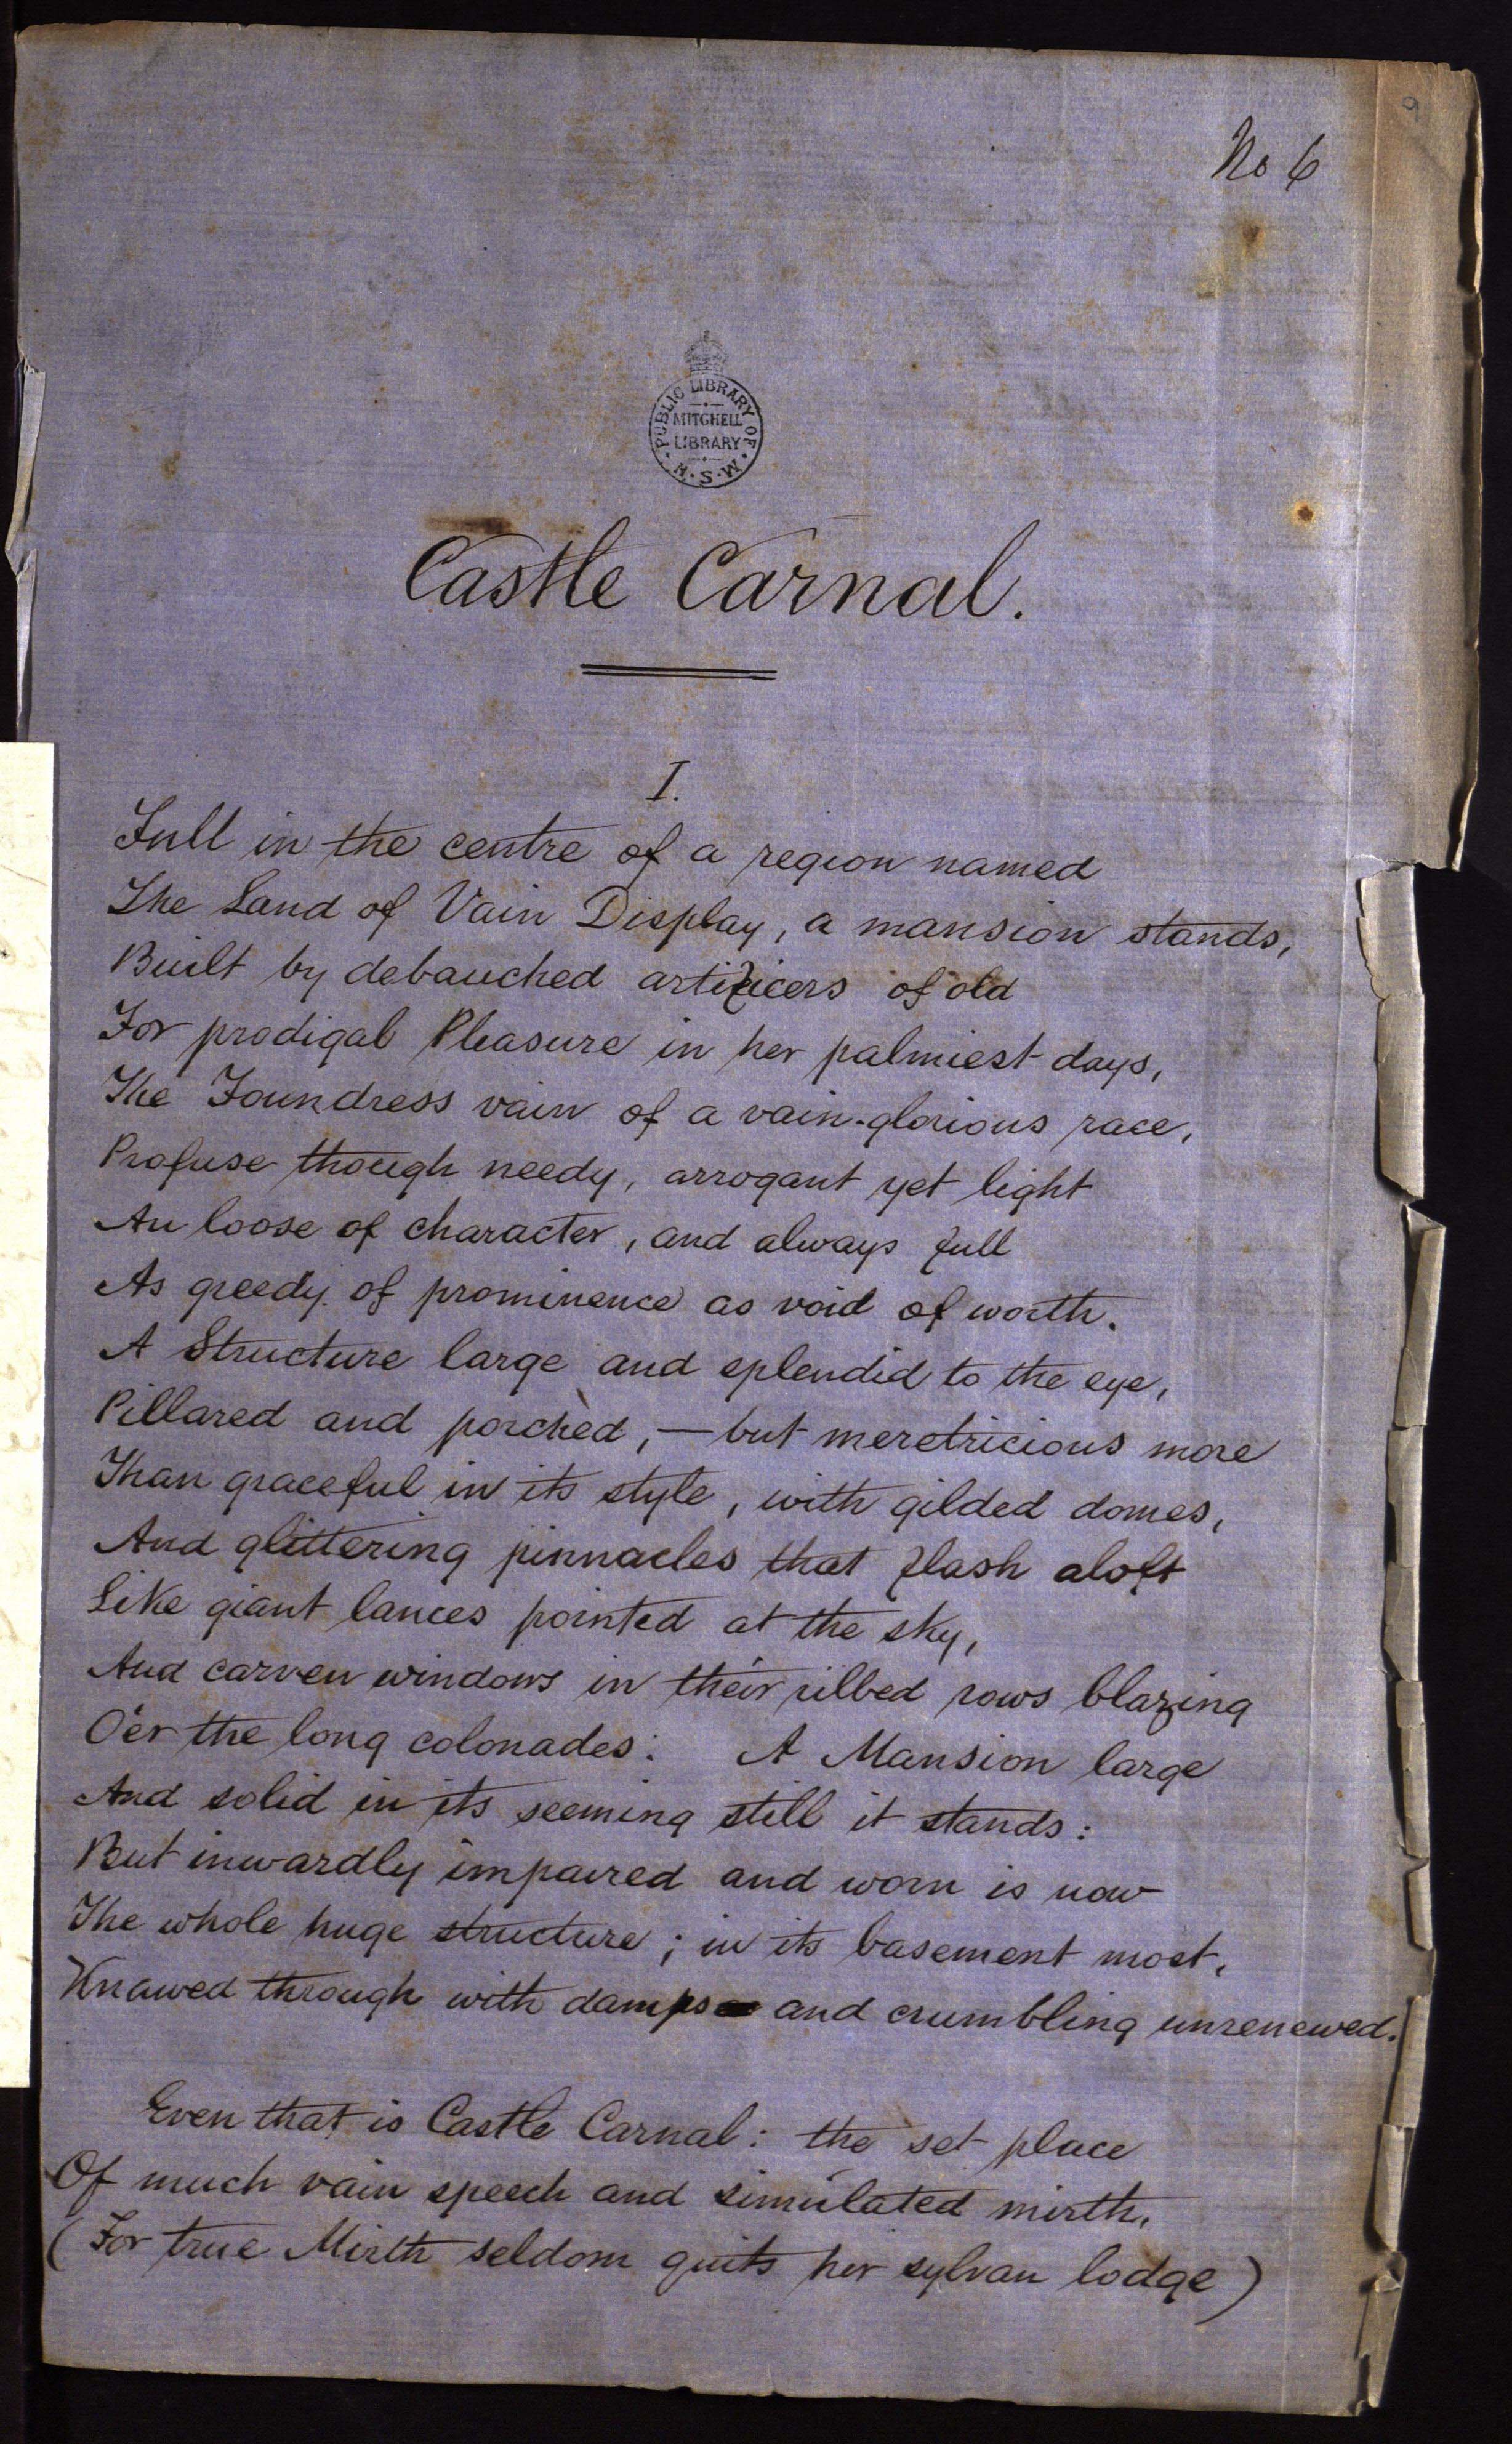 9
No 6
PUBLIC LIBRARY OF N.S.W.
MITCHELL
LIBRARY
Castle Carnal.
I.
Full in the centre of a region named
The Land of Vain Display, a mansion stands,
Built by debauched artificers of old
For prodigal Pleasure in her palmiest days,
The Foundress vain of a vain-glorious race,
Profuse though needy, arrogant yet light
An loose of character, and always full
As greedy of prominence as void of worth.
A Structure large and splendid to the eye,
Pillared and porchèd,—but meretricious more
Than graceful in its style, with gilded domes,
And glittering pinnacles that flash aloft
Like giant lances pointed at the sky,
And carven windows in their ribbed rows blazing
O'er the long colonades: A Mansion large
And solid in its seeming still it stands:
But inwardly impaired and worn is now
The whole huge structure; in its basement most,
Knawed through with damps and crumbling unrenewed.
Even that is Castle Carnal: the set place
Of much vain speech and simulated mirth,
(For true Mirth seldom quits her sylvan lodge)